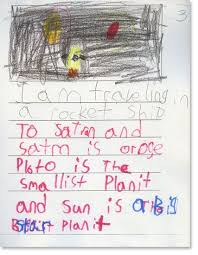 3
I am traveling in
a rocket ship
To Satrn and
satrn is oroge
Ploto is The
smallist Planit
and Sun is a Big
star Planit